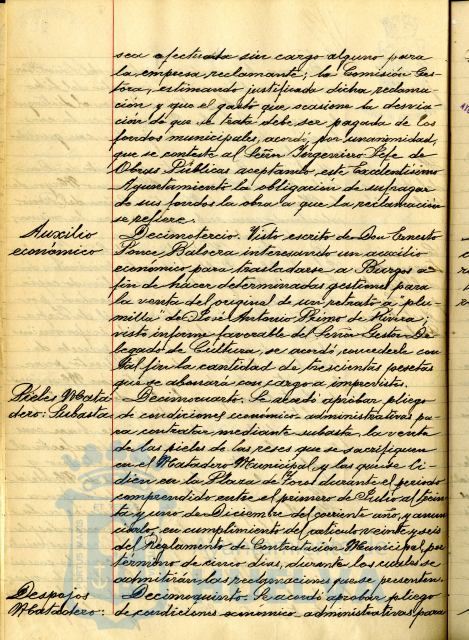 sea efectuada sin cargo alguno para
la empresa reclamante; la Comisión Ges-
tora, estimando justificada dicha reclama-
ción y que el gasto que ocasione la desvia-
ción de que se trata debe ser pagada de los
fondos municipales, acordó, por unanimidad,
que se conteste al Señor Ingeniero Jefe de
Obras Públicas aceptando este Excelentísimo
Ayuntamiento la obligación de sufragar
de sus fondos la obra a que la reclamación
se refiere.
Auxilio
económico
Decimotercio. Visto escrito de Don Ernesto
Ponce Balsera interesando un auxilio
económico para trasladarse a Burgos a
fin de hacer determinadas gestiones para
la venta del original de un retrato a "plu-
milla" de José Antonio Primo de Rivera;
visto informe favorable del Señor Gestor De-
legado de Cultura, se acordó concederle con
tal fin la cantidad de trescientas pesetas
que se abonará con cargo a imprevistos.
Pieles Mata
dero: Subasta
Decimocuarto. Se acordó aprobar pliego
de condiciones económico-administrativas pa-
ra contratar mediante subasta, la venta
de las pieles de las reses que se sacrifiquen
en el Matadero Municipal y las que se li-
dien en la Plaza de Toros durante el periodo
comprendido entre el primero de Julio al trein-
ta y uno de Diciembre del corriente año, y anun-
ciarlo, en cumplimiento del artículo veinte y seis
del Reglamento de Contratación Municipal, por
término de cinco días, durante los cuales se
admitirán las reclamaciones que se presenten.
Despojos
Matadero:
Decimoquinto. Se acordó aprobar pliego
de condiciones económico-administrativas para